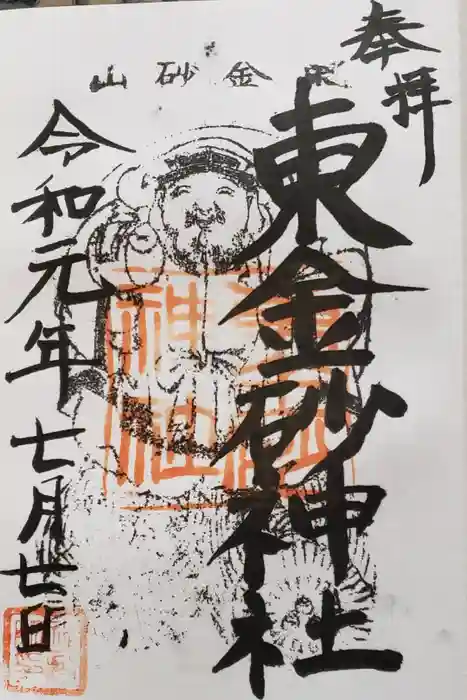 奉拝
東金砂山
東金砂神社
令和元年
七月廿日